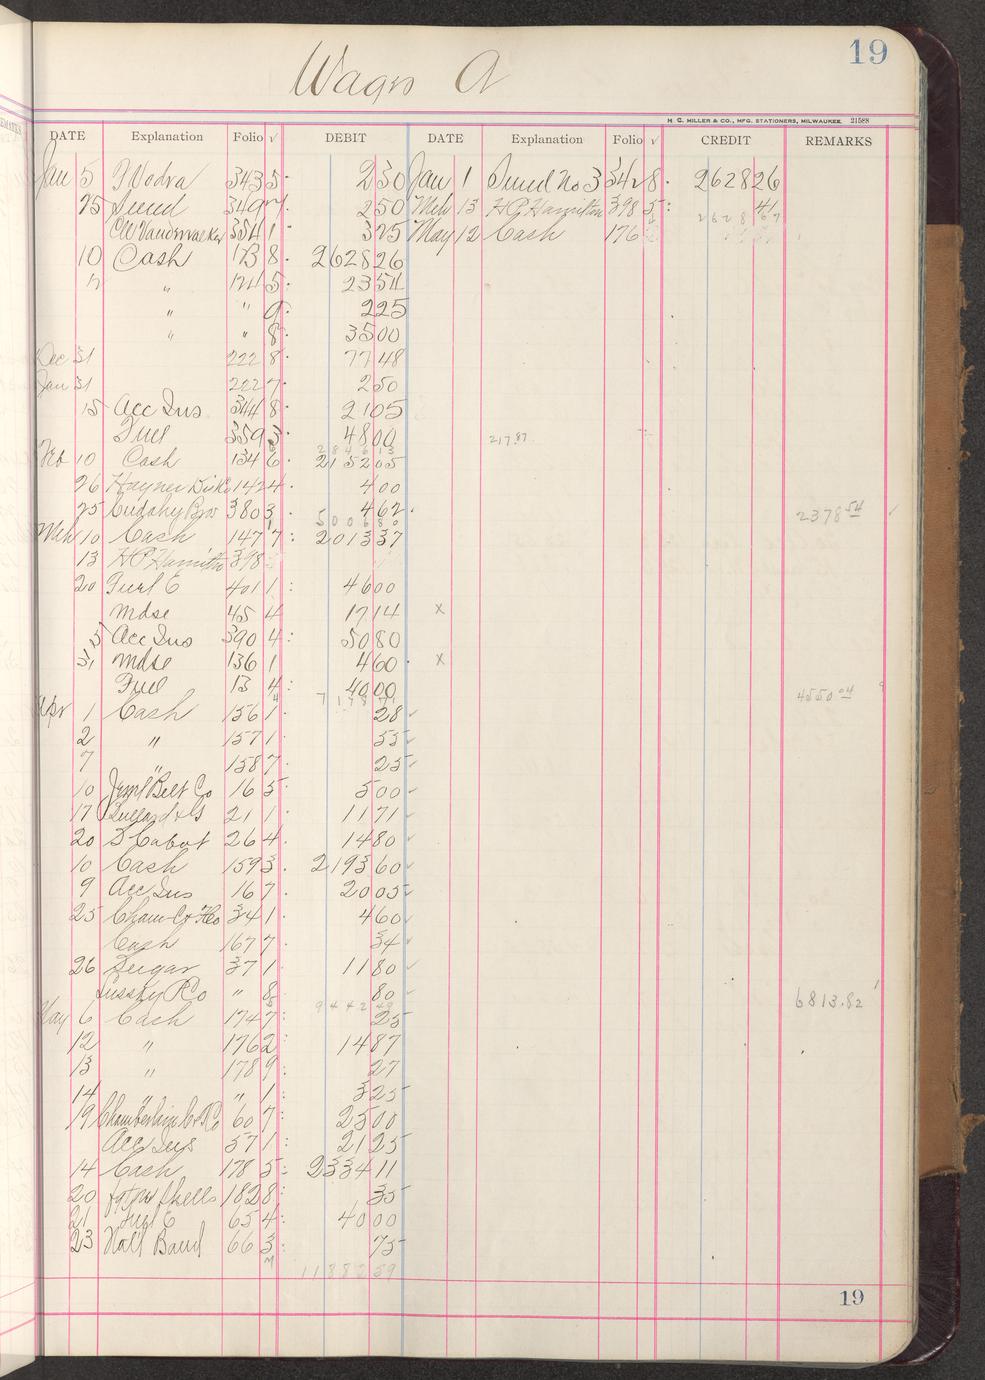 Wages A
19
H. C. MILLER & CO., MFG. STATIONERS, MILWAUKEE. 21588
DATE Explanation Folio √ DEBIT DATE Explanation Folio √ CREDIT REMARKS
Jan 5 343 5 2 30 Jan 1 Sund No 3 342 8 2628 26
25 Sund 349 7 2 50 Mch 13 H P Hamilton 398 5 41
CW Vanderwalker 354 1 3 75 May 12 Cash 176
2628 67
10 Cash 173 8 2628 26
12 " 174 5 23 54
" " 9 2 25
" " 8 35 00
Dec 31 222 8 77 48
Jan 31 222 7 2 50
15 Acc Ins 344 8 21 05
Fuel 359 3 48 00 217.87
2846 13
Feb 10 Cash 134 6 2152 05
26 142 4 4 00
25 Cudahy Bros 380 3 4 62 2378 54
5006 80
Mch 10 Cash 147 7 2013 37
13 H P Hamilton 398
20 Fuel E 401 1 46 00
Mdse 45 4 17 14 x
5 Acc Ins 390 4 50 80
31 Mdse 136 1 4 60 x
Fuel 13 4 40 00 4550 04
Apr 1 Cash 156 1 28
2 " 157 1 55
7 " 158 7 25
10 Belt Co 16 5 5 00
17 21 1 11 71
20 S Cabot 26 4 14 80
10 Cash 159 3 2193 60
9 Acc Ins 16 7 20 05
25 Cham C & H Co 34 1 4 60
Cash 167 7 34
26 Sugar 37 1 11 80
R Co " 8 80 6813.82
9442 49
May 6 Cash 174 7 25
12 " 176 2 14 87
13 " 178 9 27
14 " " 1 3 25
19 Chamberlain 60 7 25 00
Acc Ins 57 1 21 25
14 Cash 178 5 2334 11
20 Shells 182 8 35
21 Fuel E 65 4 40 00
23 Natl Band 66 3 75
11882 59
19